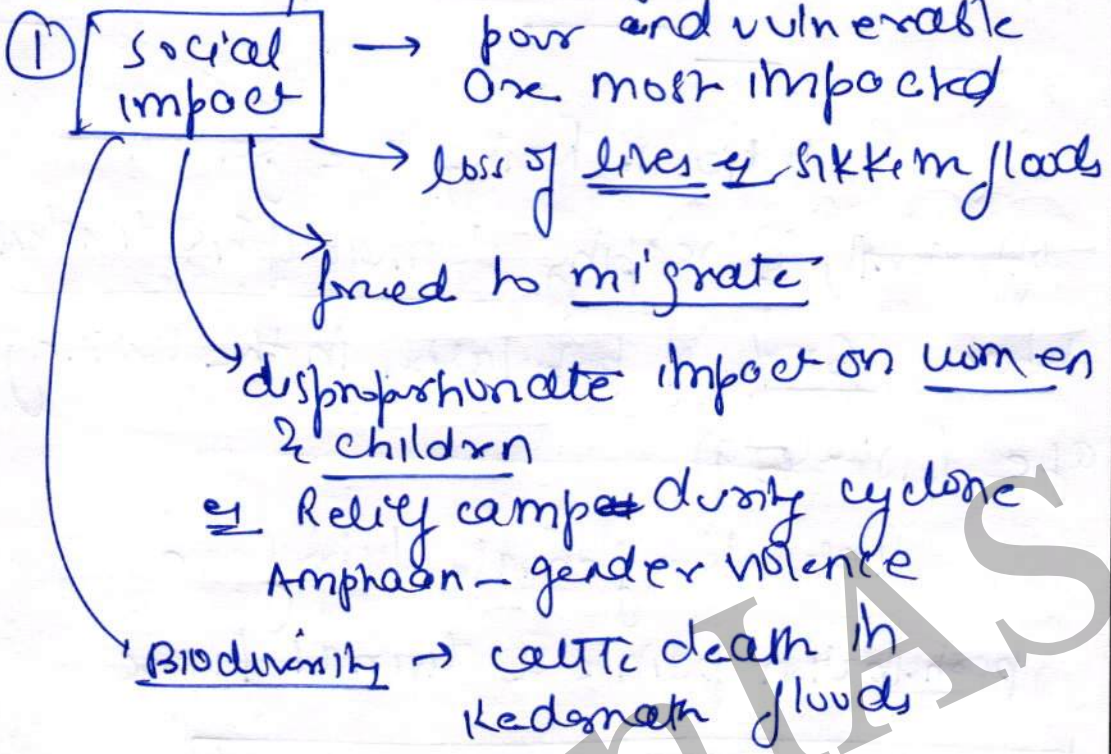 ① social → poor and vulnerable
impact are most impacted
→ loss of lives eg sikkim floods
forced to migrate
disproportionate impact on women
& children
eg Relief camp during cyclone
Amphaan - gender violence
Biodiversity → cattle death in
Kedarnath floods
IAS